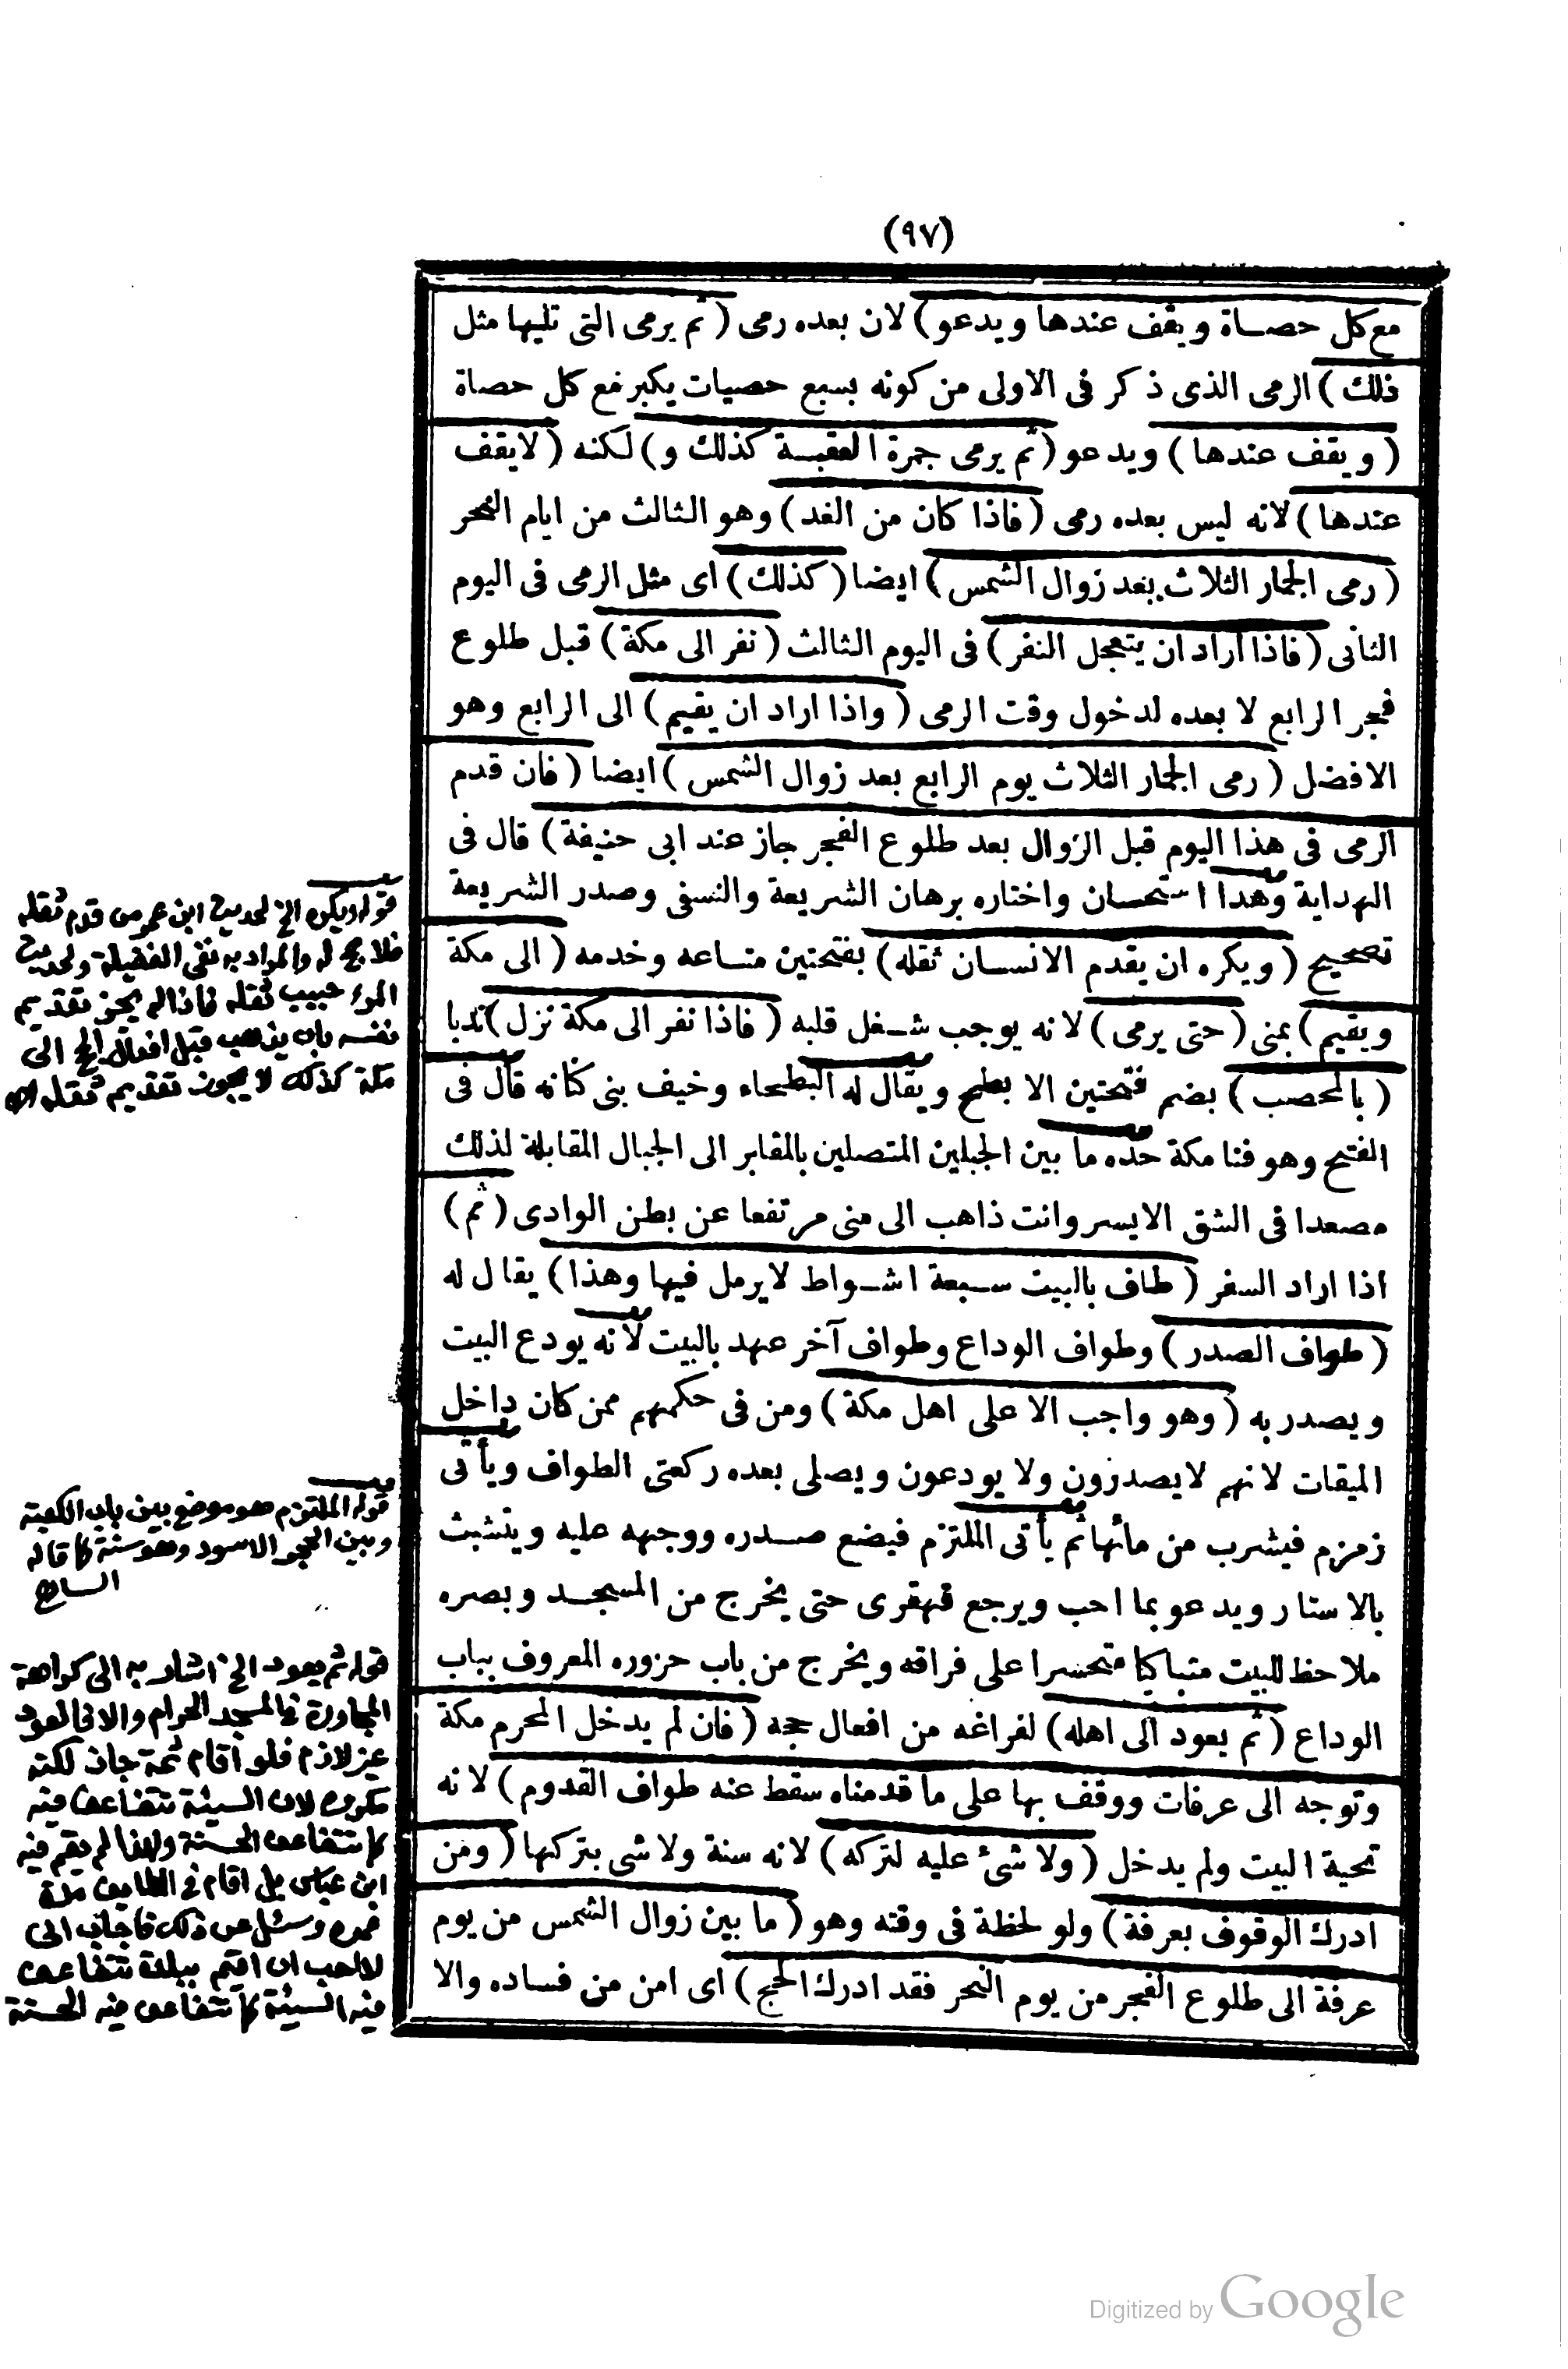 (٩٧)
مع كل حصاة ويقف عندها ويدعو) لان بعده رمى (ثم يرمى التى تليها مثل
ذلك) الرمى الذى ذكر فى الاولى من كونه بسبع حصيات يكبر مع كل حصاة
(ويقف عندها) ويدعو (ثم يرمى جمرة العقبة كذلك و) لكنه (لايقف
عندها) لانه ليس بعده رمى (فاذا كان من الغد) وهو الثالث من ايام النحر
(رمى الجمار الثلاث بعد زوال الشمس) ايضا (كذلك) اى مثل الرمى فى اليوم
الثانى (فاذا اراد ان يتعجل النفر) فى اليوم الثالث (نفر الى مكة) قبل طلوع
فجر الرابع لا بعده لدخول وقت الرمى (واذا اراد ان يقيم) الى الرابع وهو
الافضل (رمى الجمار الثلاث يوم الرابع بعد زوال الشمس) ايضا (فان قدم
الرمى فى هذا اليوم قبل الزوال بعد طلوع الفجر جاز عند ابى حنيفة) قال فى
الهداية وهذا استحسان واختاره برهان الشريعة والنسفى وصدر الشريعة
تصحيح (ويكره ان يقدم الانسان ثقله) بفتحتين متاعه وخدمه (الى مكة
ويقيم) بمنى (حتى يرمى) لانه يوجب شغل قلبه (فاذا نفر الى مكة نزل) ندبا
(بالمحصب) بضم ففتحتين الابطح ويقال له البطحاء وخيف بنى كنانه قال فى
الفتح وهو فنا مكة حده ما بين الجبلين المتصلين بالمقابر الى الجبال المقابلة لذلك
مصعدا فى الشق الايسر وانت ذاهب الى منى مرتفعا عن بطن الوادى (ثم)
اذا اراد السفر (طاف بالبيت سبعة اشواط لايرمل فيها وهذا) يقال له
(طواف الصدر) وطواف الوداع وطواف آخر عهد بالبيت لانه يودع البيت
ويصدر به (وهو واجب الا على اهل مكة) ومن فى حكمهم ممن كان داخل
الميقات لانهم لايصدرون ولا يودعون ويصلى بعده ركعتى الطواف ويأتى
زمزم فيشرب من مائها ثم يأتى الملتزم فيضع صدره ووجهه عليه ويتشبث
بالاستار ويدعو بما احب ويرجع قهقرى حتى يخرج من المسجد وبصره
ملاحظ للبيت متباكيا متحسرا على فراقه ويخرج من باب حزوره المعروف بباب
الوداع (ثم يعود الى اهله) لفراغه من افعال حجه (فان لم يدخل المحرم مكة
وتوجه الى عرفات ووقف بها على ما قدمناه سقط عنه طواف القدوم) لانه
تحية البيت ولم يدخل (ولا شئ عليه لتركه) لانه سنة ولا شى بتركها (ومن
ادرك الوقوف بعرفة) ولو لحظة فى وقته وهو (ما بين زوال الشمس من يوم
عرفة الى طلوع الفجر من يوم النحر فقد ادرك الحج) اى امن من فساده والا
قوله ويكره الخ لحديث ابن عمر من قدم ثقله
فلا حج له والمراد به نفى الفضيلة ولحديث
المرء حبيب ثقله فاذا لم يجز تقديم
نفسه بان يذهب قبل افعال الحج الى
مكة كذلك لا يجوز تقديم ثقله
قوله الملتزم هو موضع بين باب الكعبة
وبين الحجر الاسود وهو سنة كما قاله
قوله ثم يعود الخ اشار به الى كراهة
المجاورة فى المسجد الحرام والا فالعود
غير لازم فلو اقام ثمة جاز لكنه
مكروه لان السيئة تتضاعف فيه
كما تتضاعف الحسنة ولهذا لم يقم فيه
ابن عباس بل اقام فى الطايف مدة
عمره وسئل عن ذلك فاجاب انى
لا احب ان اقيم ببلدة تتضاعف
فيه السيئة كما تتضاعف فيه الحسنة
Digitized by Google